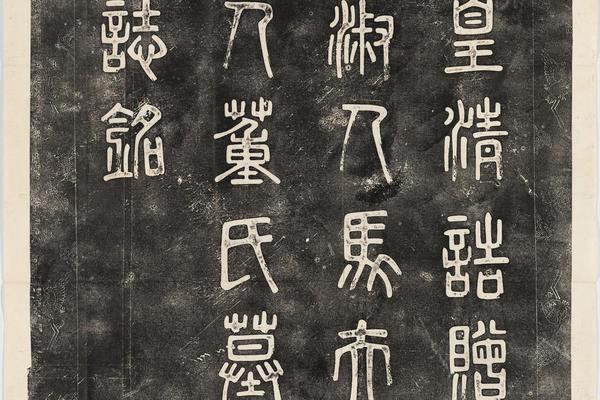 皇清誥贈
淑人馬夫
人董氏墓
誌銘